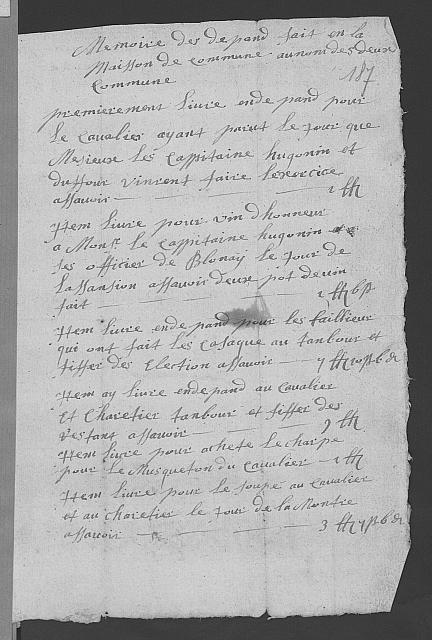 Memoire des depand fait en la
Maisson de Commune au nom des deux
Commune
187
premierement livre en depand pour
le Cavalier ayant parut le Jour que
Mesieux les Cappitaine hugonin et
dufour vinrent faire lexercice
assavoir
Jtem livre pour vin dhonneur
a Monsr. le Cappitaine hugonin
ses officier de Blonay le Jour de
lassansion assavoir deux pot de vin
fait
Jtem livre en depand pour les taillieur
qui ont fait les Casaque au tanbour et
fiffer des Election assavoir
Jtem ay livre en depand au Cavalier
et Charetier tanbour et fiffer des
restant assavoir
Jtem livre pour achete lecharpe
pour le Musqueton du Cavalier
Jtem livre pour le soupe au Cavalier
et au Charetier le Jour de la Montre
assavoir